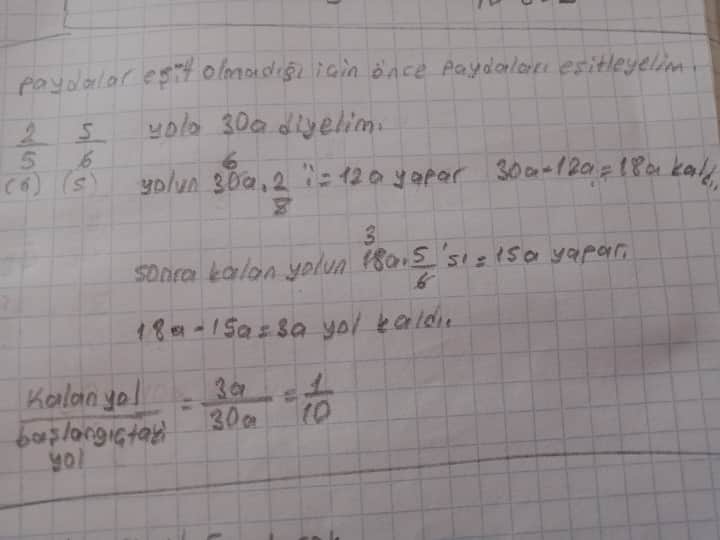 paydalar eşit olmadığı için önce paydaları eşitleyelim.
2/5 5/6 yola 30a diyelim.
(6) (5) yolun 30a . 2/5 'i = 12a yapar 30a - 12a = 18a kaldı.
6
3
sonra kalan yolun 18a . 5/6 'sı = 15a yapar.
18a - 15a = 3a yol kaldı.
Kalan yol / başlangıçtaki yol = 3a/30a = 1/10